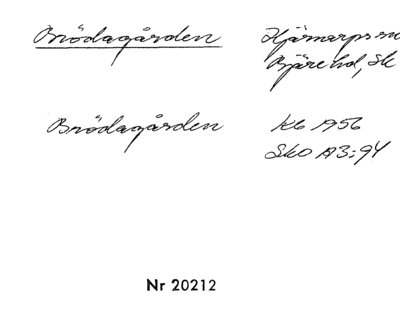 Brödagården
Hjärnarps sn
Bjäre hd, Sk
Brödagården
KG 1956
Sko A3:94
Nr 20212